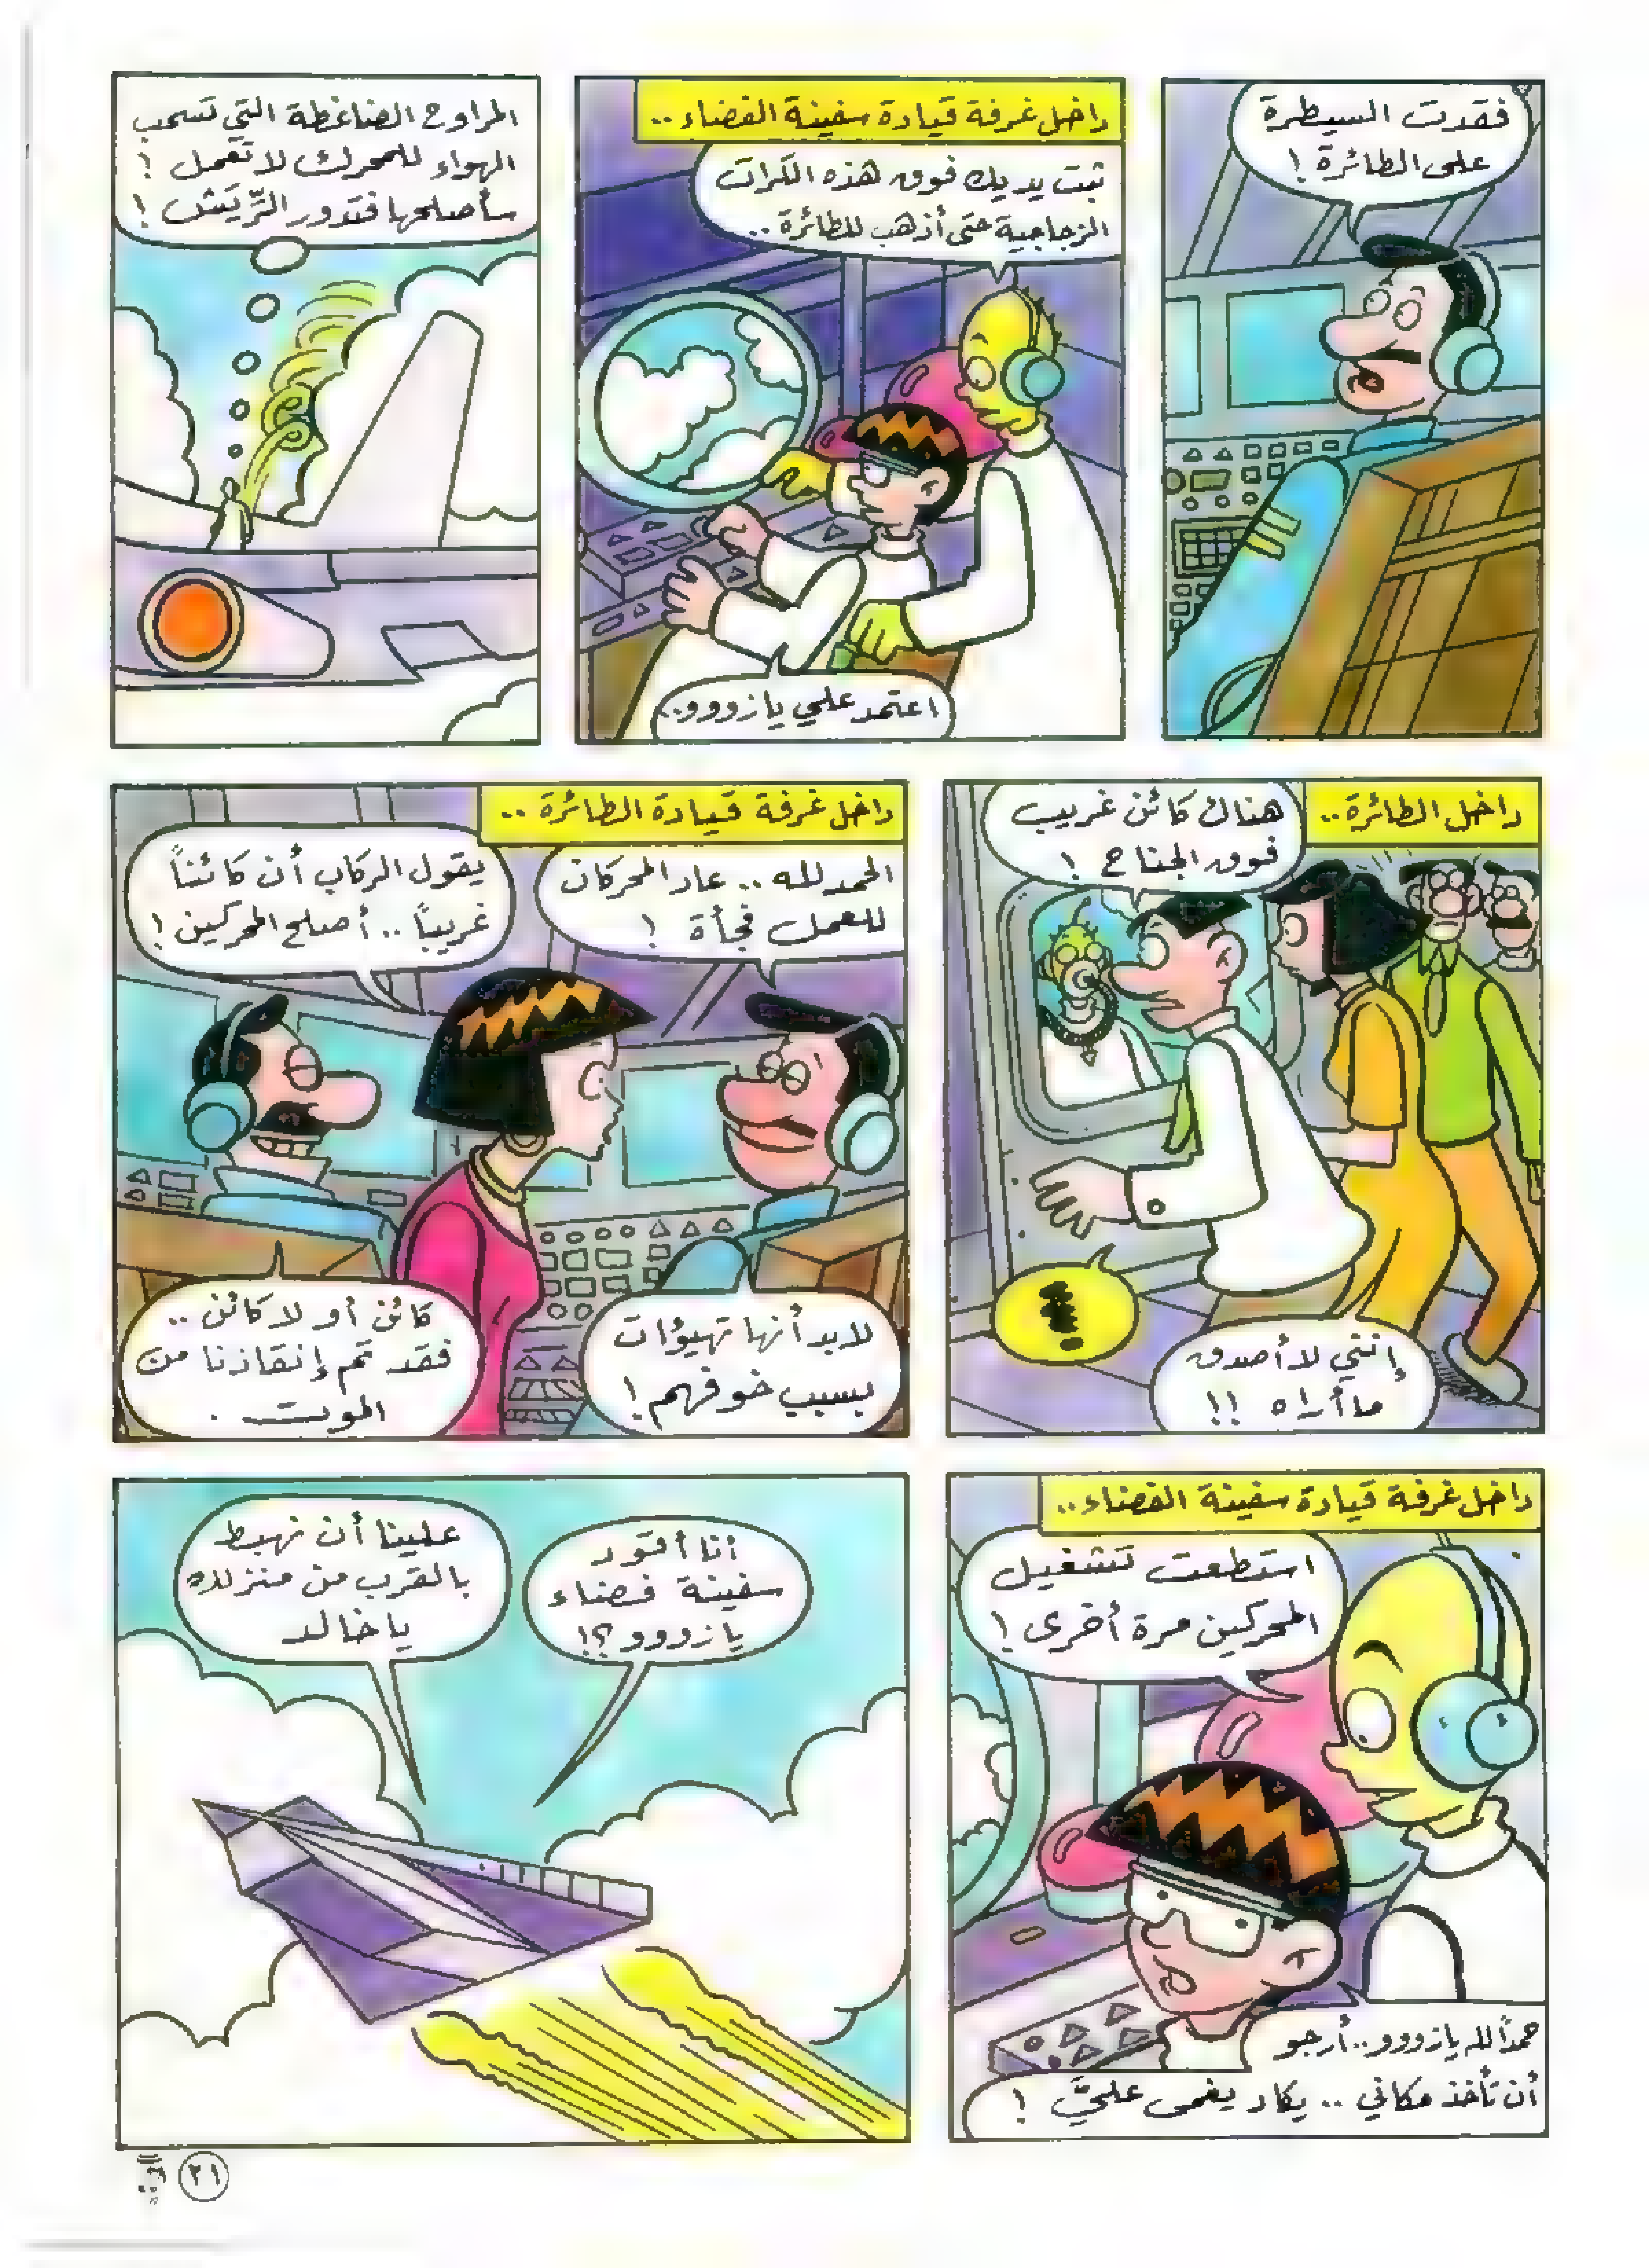 فقدت السيطرة
على الطائرة !
داخل غرفة قيادة سفينة الفضاء ..
ثبت يديك فوق هذه الكرات
الزجاجية حتى أذهب للطائرة ..
اعتمد علي يا زووو..
المراوح الضاغطة التي تسحب
الهواء للمحرك لا تعمل !
سأصلحها فتدور الرِّيَش !
داخل الطائرة ..
هناك كائن غريب
فوق الجناح !
!
إنني لا أصدق
ما أراه !!
داخل غرفة قيادة الطائرة ..
الحمد لله .. عاد المحركان
للعمل فجأة !
يقول الركاب أن كائناً
غريباً .. أصلح المحركين !
لابد أنها تهيؤات
بسبب خوفهم !
كائن أو لا كائن ..
فقد تم إنقاذنا من
الموت .
داخل غرفة قيادة سفينة الفضاء ..
استطعت تشغيل
المحركين مرة أخرى !
حمداً لله يا زووو .. أرجو
أن تأخذ مكاني .. يكاد يغمى عليَّ !
أنا أقود
سفينة فضاء
يا زووو ؟!
علينا أن نهبط
بالقرب من منزلك
يا خالد
٢١